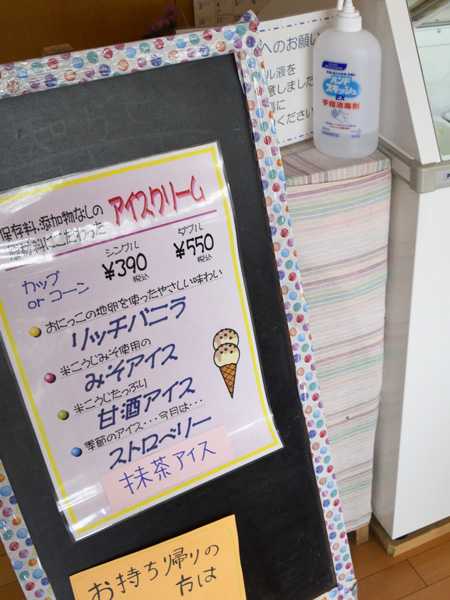 保存料、添加物なしの
アイスクリーム
シングル
¥390
税込
ダブル
¥550
税込
カップ
or コーン
おにっこの地卵を使ったやさしい味わい
リッチバニラ
米こうじみそ使用の
みそアイス
米こうじたっぷり
甘酒アイス
季節のアイス・・・今月は・・・
ストロベリー
抹茶アイス
お持ち帰りの
方は
へのお願い
ル液を
しました
に
ください
ハンド
スキッシュ
EX
手指消毒剤